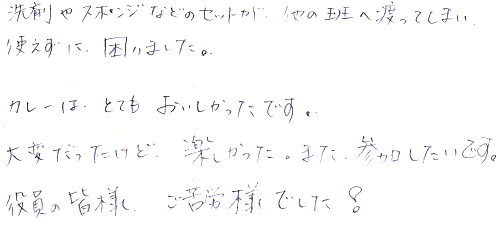 洗剤やスポンジなどのセットが、他の班へ渡ってしまい、
使えずに、困りました。
カレーは、とても おいしかったです。
大変だったけど、楽しかった。また、参加したいです。
役員の皆様、ご苦労様でした!